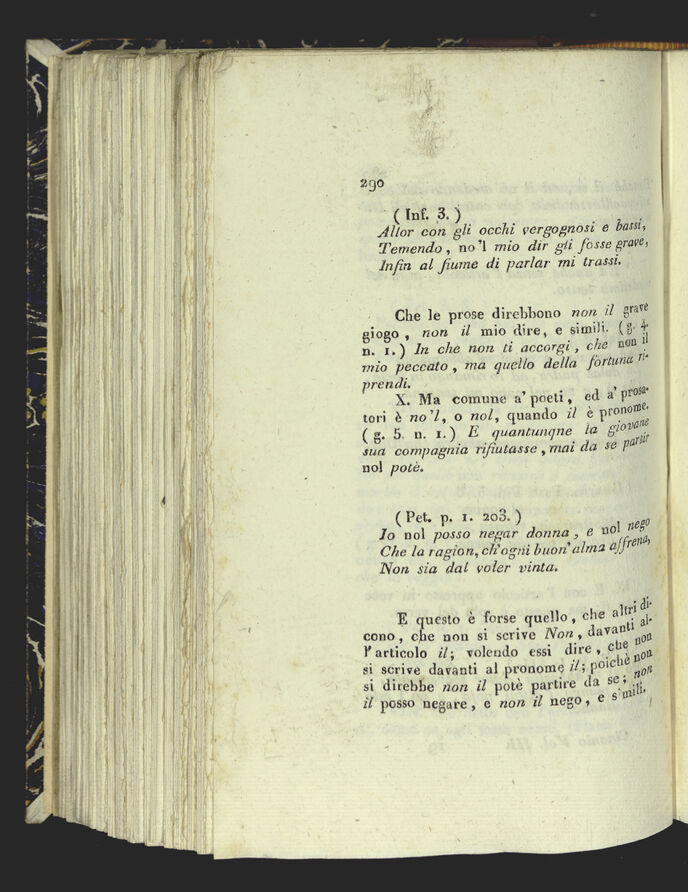 290
( Inf. 3. )
Allor con gli occhi vergognosi e bassi,
Temendo, no'l mio dir gli fosse grave,
Infin al fiume di parlar mi trassi.
Che le prose direbbono non il grave
giogo, non il mio dire, e simili. (g. 4.
n. 1.) In che non ti accorgi, che non il
mio peccato, ma quello della fortuna ri-
prendi.
X. Ma comune a' poeti, ed a' prosa-
tori è no'l, o nol, quando il è pronome.
( g. 5. n. 1.) E quantunqne la giovane
sua compagnia rifiutasse, mai da se partir
nol potè.
(Pet. p. 1. 203.)
Io nol posso negar donna, e nol nego
Che la ragion, ch'ogni buon' alma affrena,
Non sia dal voler vinta.
E questo è forse quello, che altri di-
cono, che non si scrive Non, davanti al-
l'articolo il; volendo essi dire, che non
si scrive davanti al pronome il; poichè non
si direbbe non il potè partire da se; non
il posso negare, e non il nego, e simili.